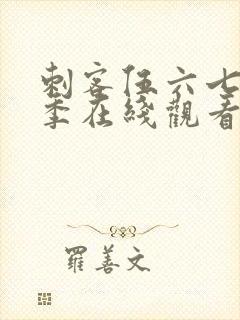 刺客伍六七
季在綫觀看
羅善文